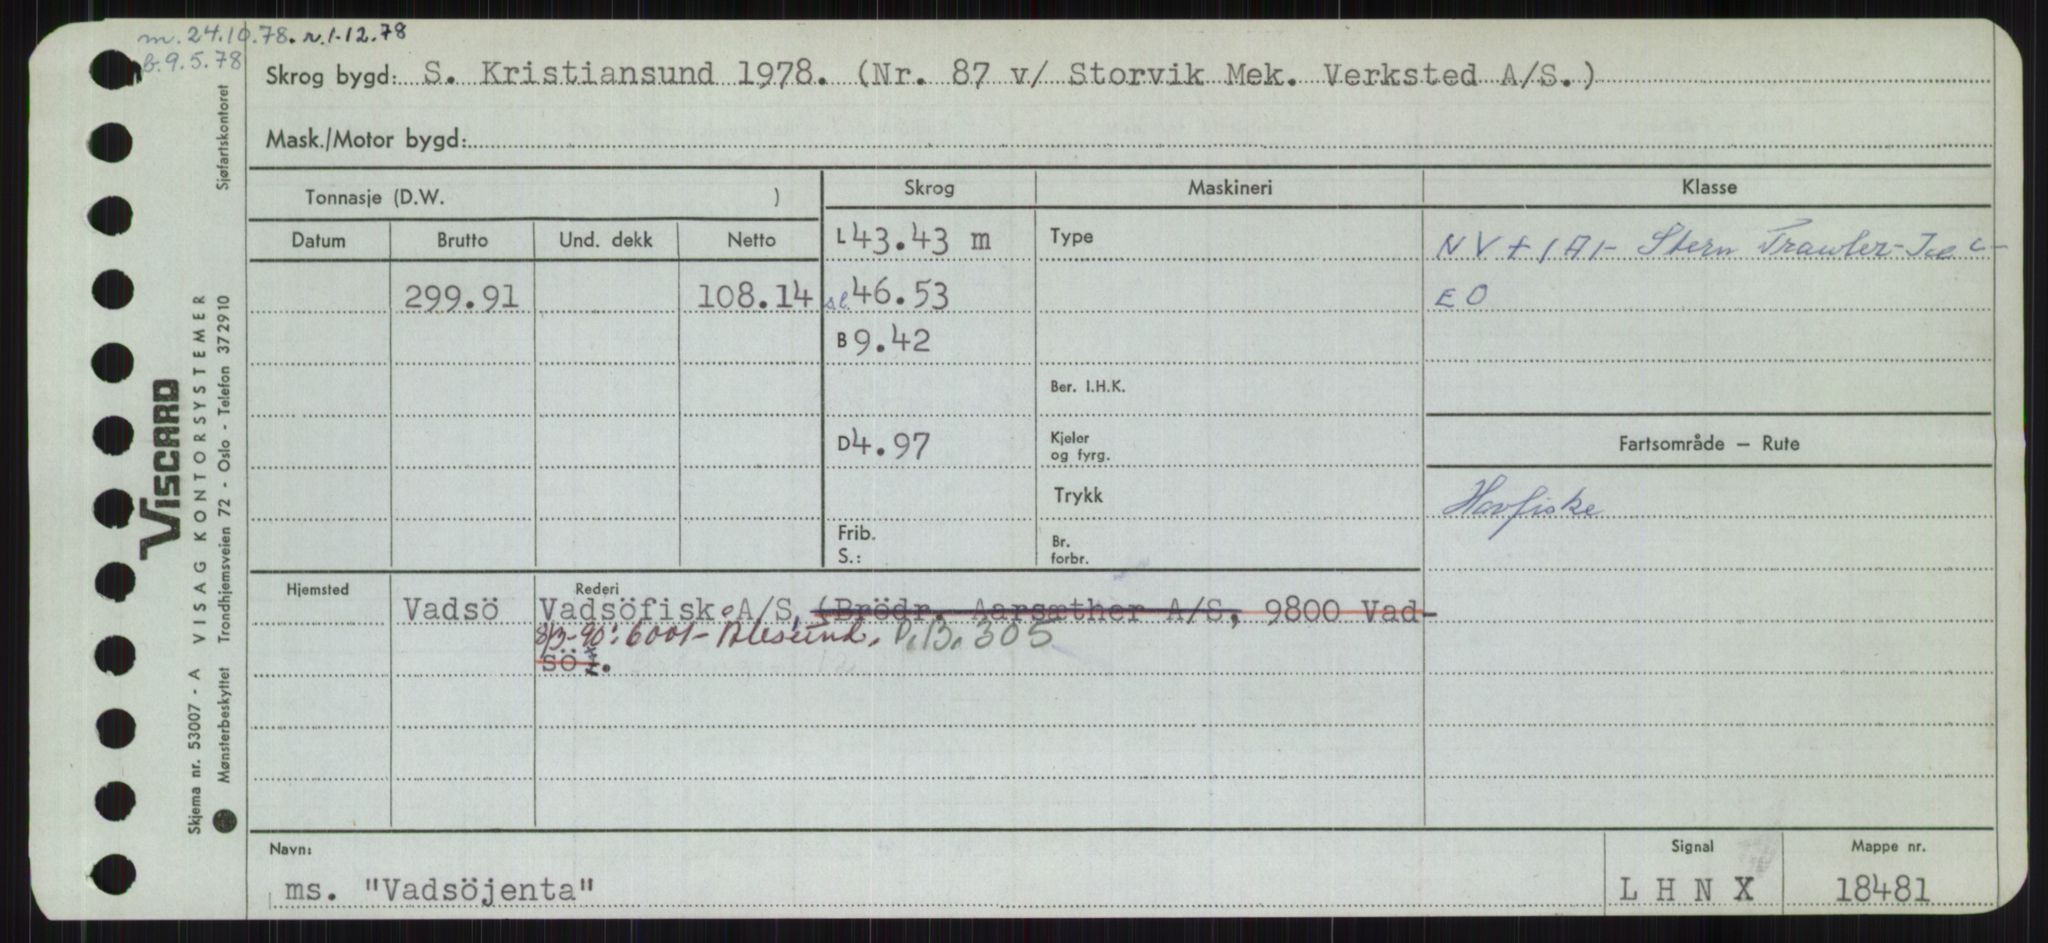 m. 24.10.78. r. 1-12.78
b. 9.5.78
Skrog bygd: S. Kristiansund 1978. (Nr. 87 v/ Storvik Mek. Verksted A/S.)
Mask./Motor bygd:
Tonnasje (D.W. )
Skrog
Maskineri
Klasse
Datum Brutto Und. dekk Netto
L 43.43 m
Type
NV + 1A1- Stern Trawler- Ice C-
299.91 108.14
s.l. 46.53
EO
B 9.42
Ber. I.H.K.
D 4.97
Kjeler og fyrg.
Fartsområde – Rute
Trykk
Havfiske
Frib.
S.:
Br. forbr.
Hjemsted
Rederi
Vadsö Vadsöfisk A/S, (Brödr. Aarsæther A/S, 9800 Vad-
8/3-90: 6001- Ålesund. P.B. 305
sö).
Navn:
ms. "Vadsöjenta"
Signal
L H N X
Mappe nr.
18481
Sjøfartskontoret
VISCARD
VISAG KONTORSYSTEMER
Trondhjemsveien 72 - Oslo - Telefon 37 29 10
Skjema nr. 53007 - A
Mønsterbeskyttet